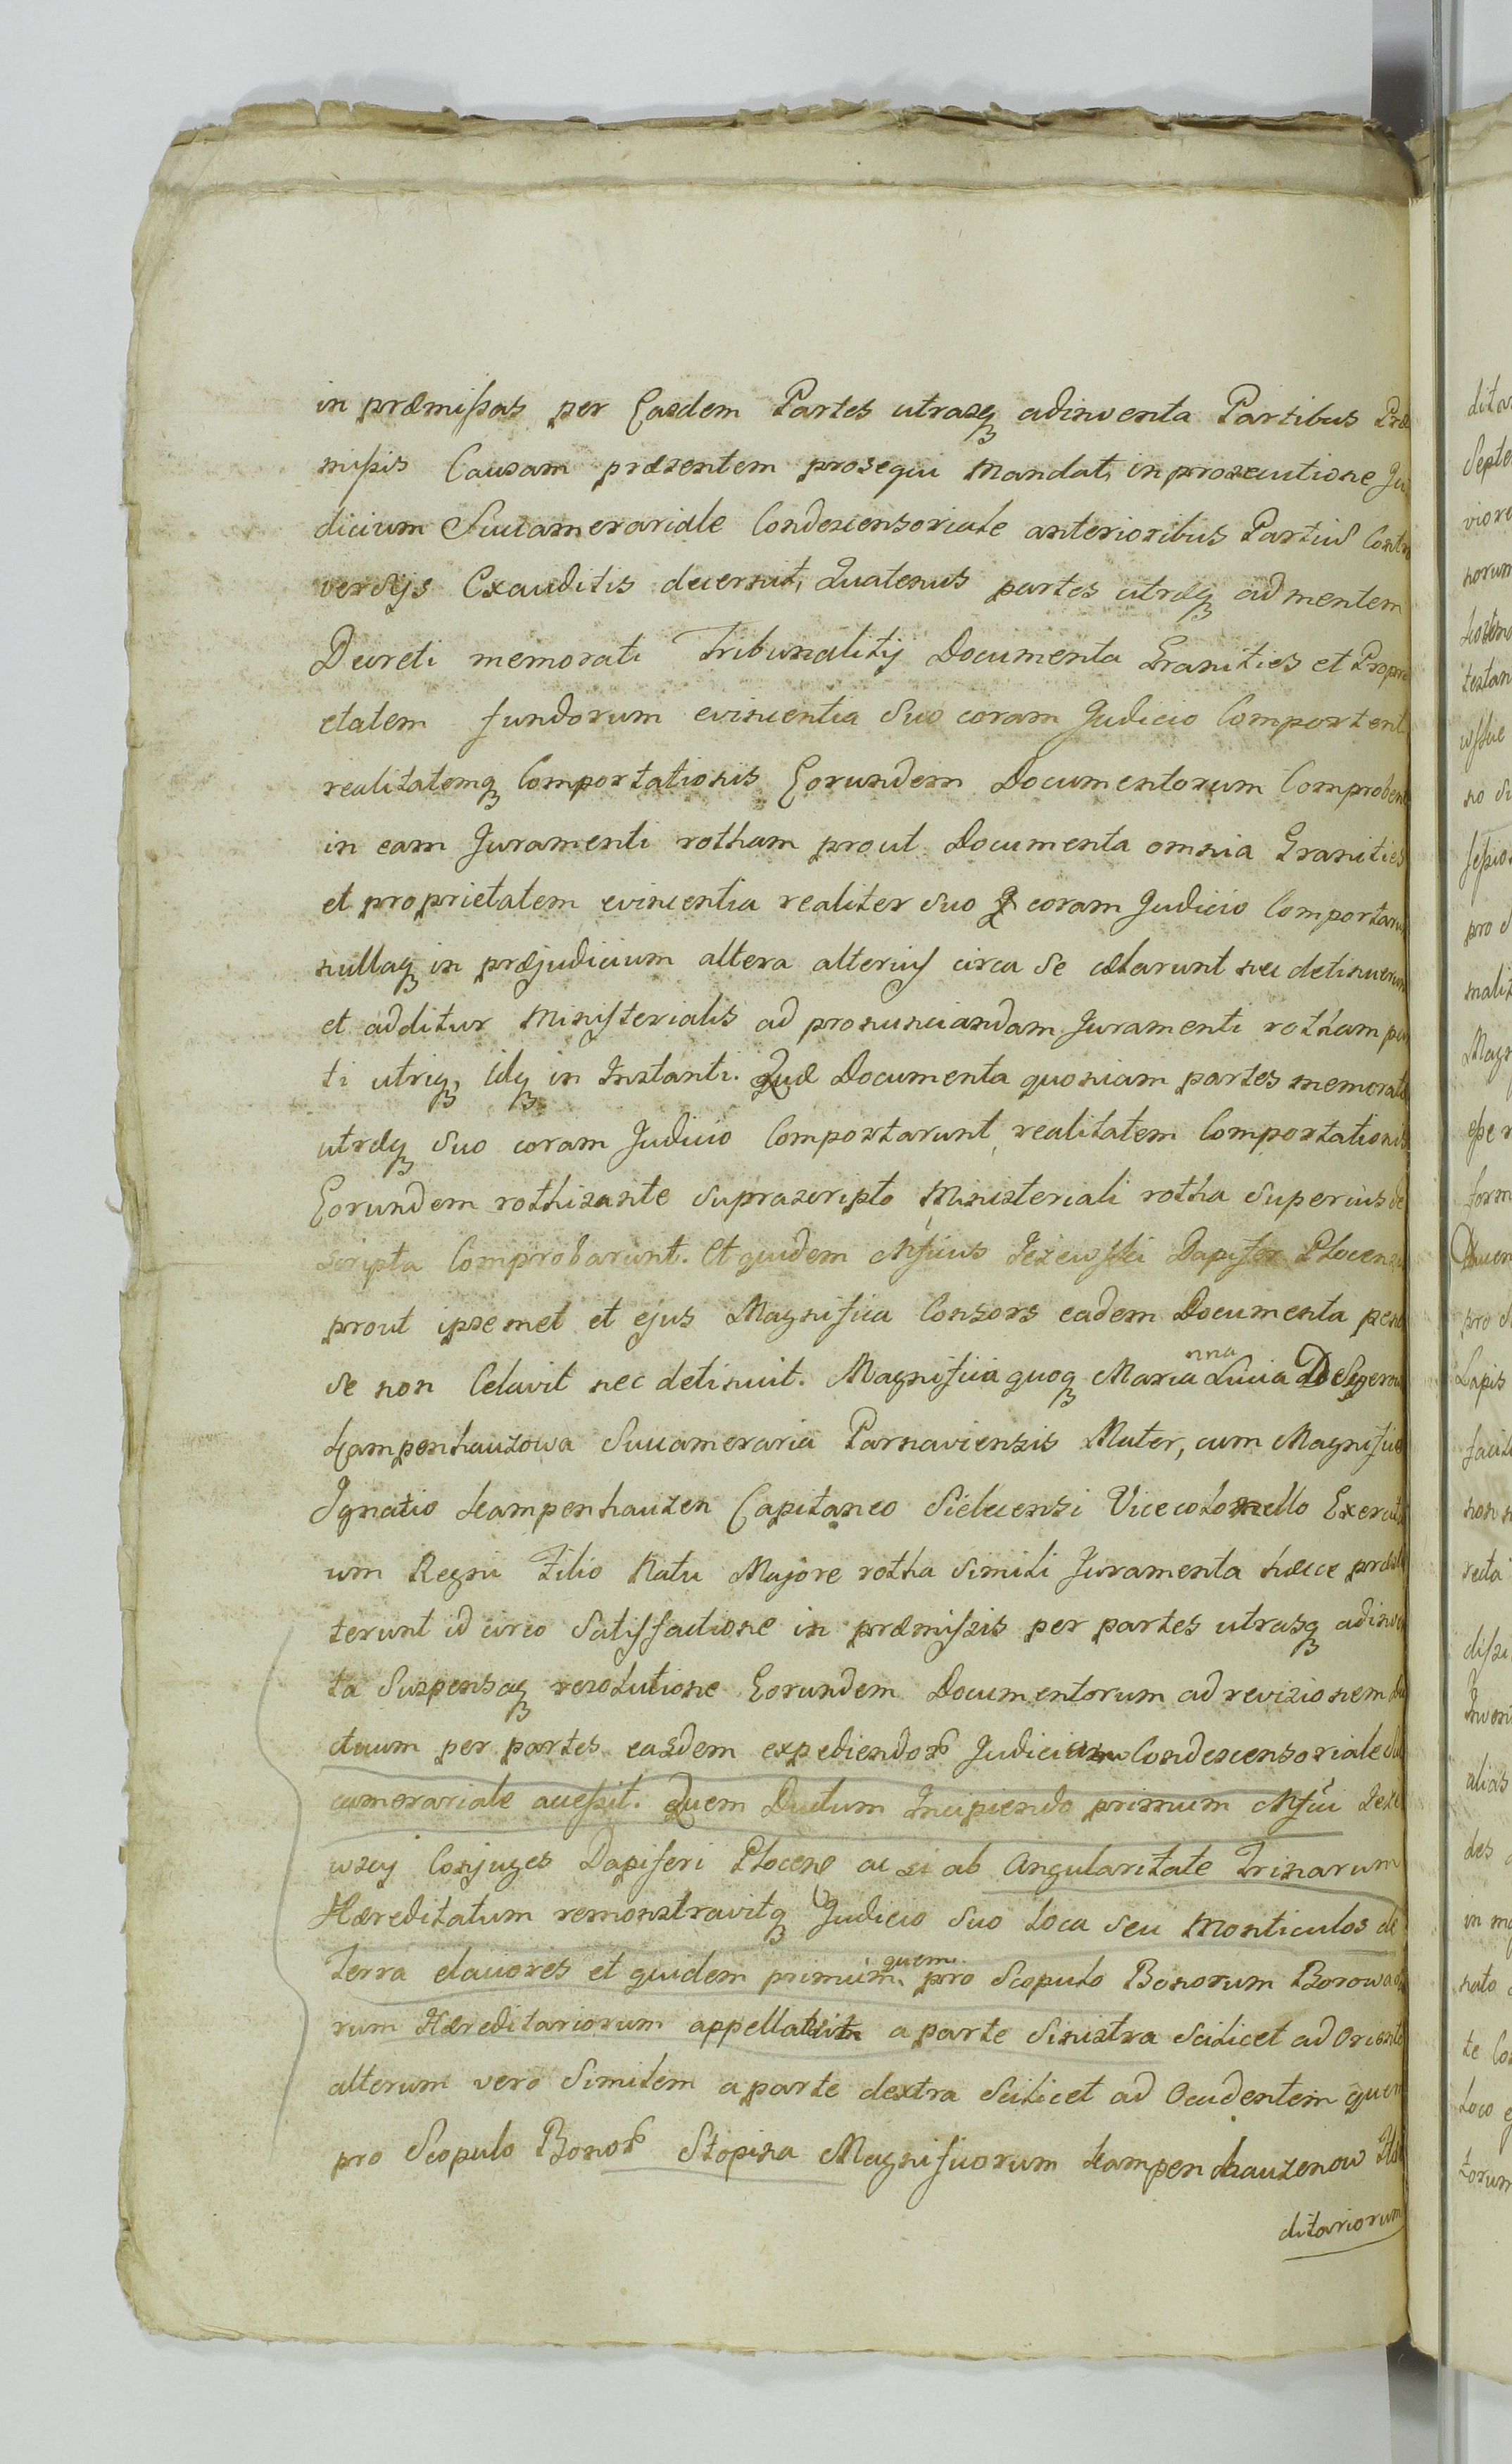 in præmissas per Easdem Partes utrasq, adinventa Partibus Præ
missis Causam præsentem prosequi mandat, in prosecutione Ju
dicium Succamerariale Condescensoriale anterioribus Partiu Contro
versijs Exauditis decernit, Quatenus partes utræq ad mentem
Decreti memorati Tribunalitij Documenta Granities et Propri
etatem fundorum evincentia Suo coram Judicio Comportent
realitatemq Comportationis Eorundem Documentorum Comprobent
in eam Juramenti rotham prout Documenta omnia Granities
et proprietatem evincentia realiter Suo coram Judicio Comportarunt
nullaq in præjudicium altera alterius circa Se celarunt nec detinuerunt
et additur Ministerialis ad pronunciandam Juramenti rotham par
ti utriq, idq in Instanti. Quæ Documenta quoniam partes memoratæ
utræq Suo coram Judicio Comportarunt, realitatem Comportationis
Eorundem rothisante Suprascripto Ministeriali rotha Superius de
scripta Comprobarunt. Et quidem Mficus Jezewski Dapifer Plocensis
prout ipsemet et ejus Magnifica Consors eadem Documenta penes
Se non Celavit nec detinuit. Magnifica quoq Marianna Lucia De
Kampenhauzowa Succameraria Parnaviensis Mater, cum Magnifico
Ignatio Kampenhauzen Capitaneo Sielecensi Vicecolonello Exercitu
um Regni Filio Natu Majore rotha Simili Juramenta hæcce præsti
terunt id circo Satisfactione in præmissis per partes utrasq adinven
ta Suspensaq resolutione Eorundem Documentorum ad revisionem du
ctuum per partes easdem expediendor Judicium Condescensoriale Suc
camerariale accessit. Quem Ductum Incipiendo primum Mfici Jeze
wscy Conjuges Dapiferi Plocens ac si ab Angularitate Trinarum
Hæreditatum remonstravitq Judicio Suo Loca Seu Monticulos de
Terra elaviores et quidem primum quem pro Scopulo Bonorum Borowa
rum Hæreditariorum a parte Sinistra Scilicet ad Oriente
alterum vero Similem a parte dextra Scilicet ad Occidentem quem
pro Scopulo Bonor Stopina Magnificorum Kampenhauzenow Hæ
ditariorum